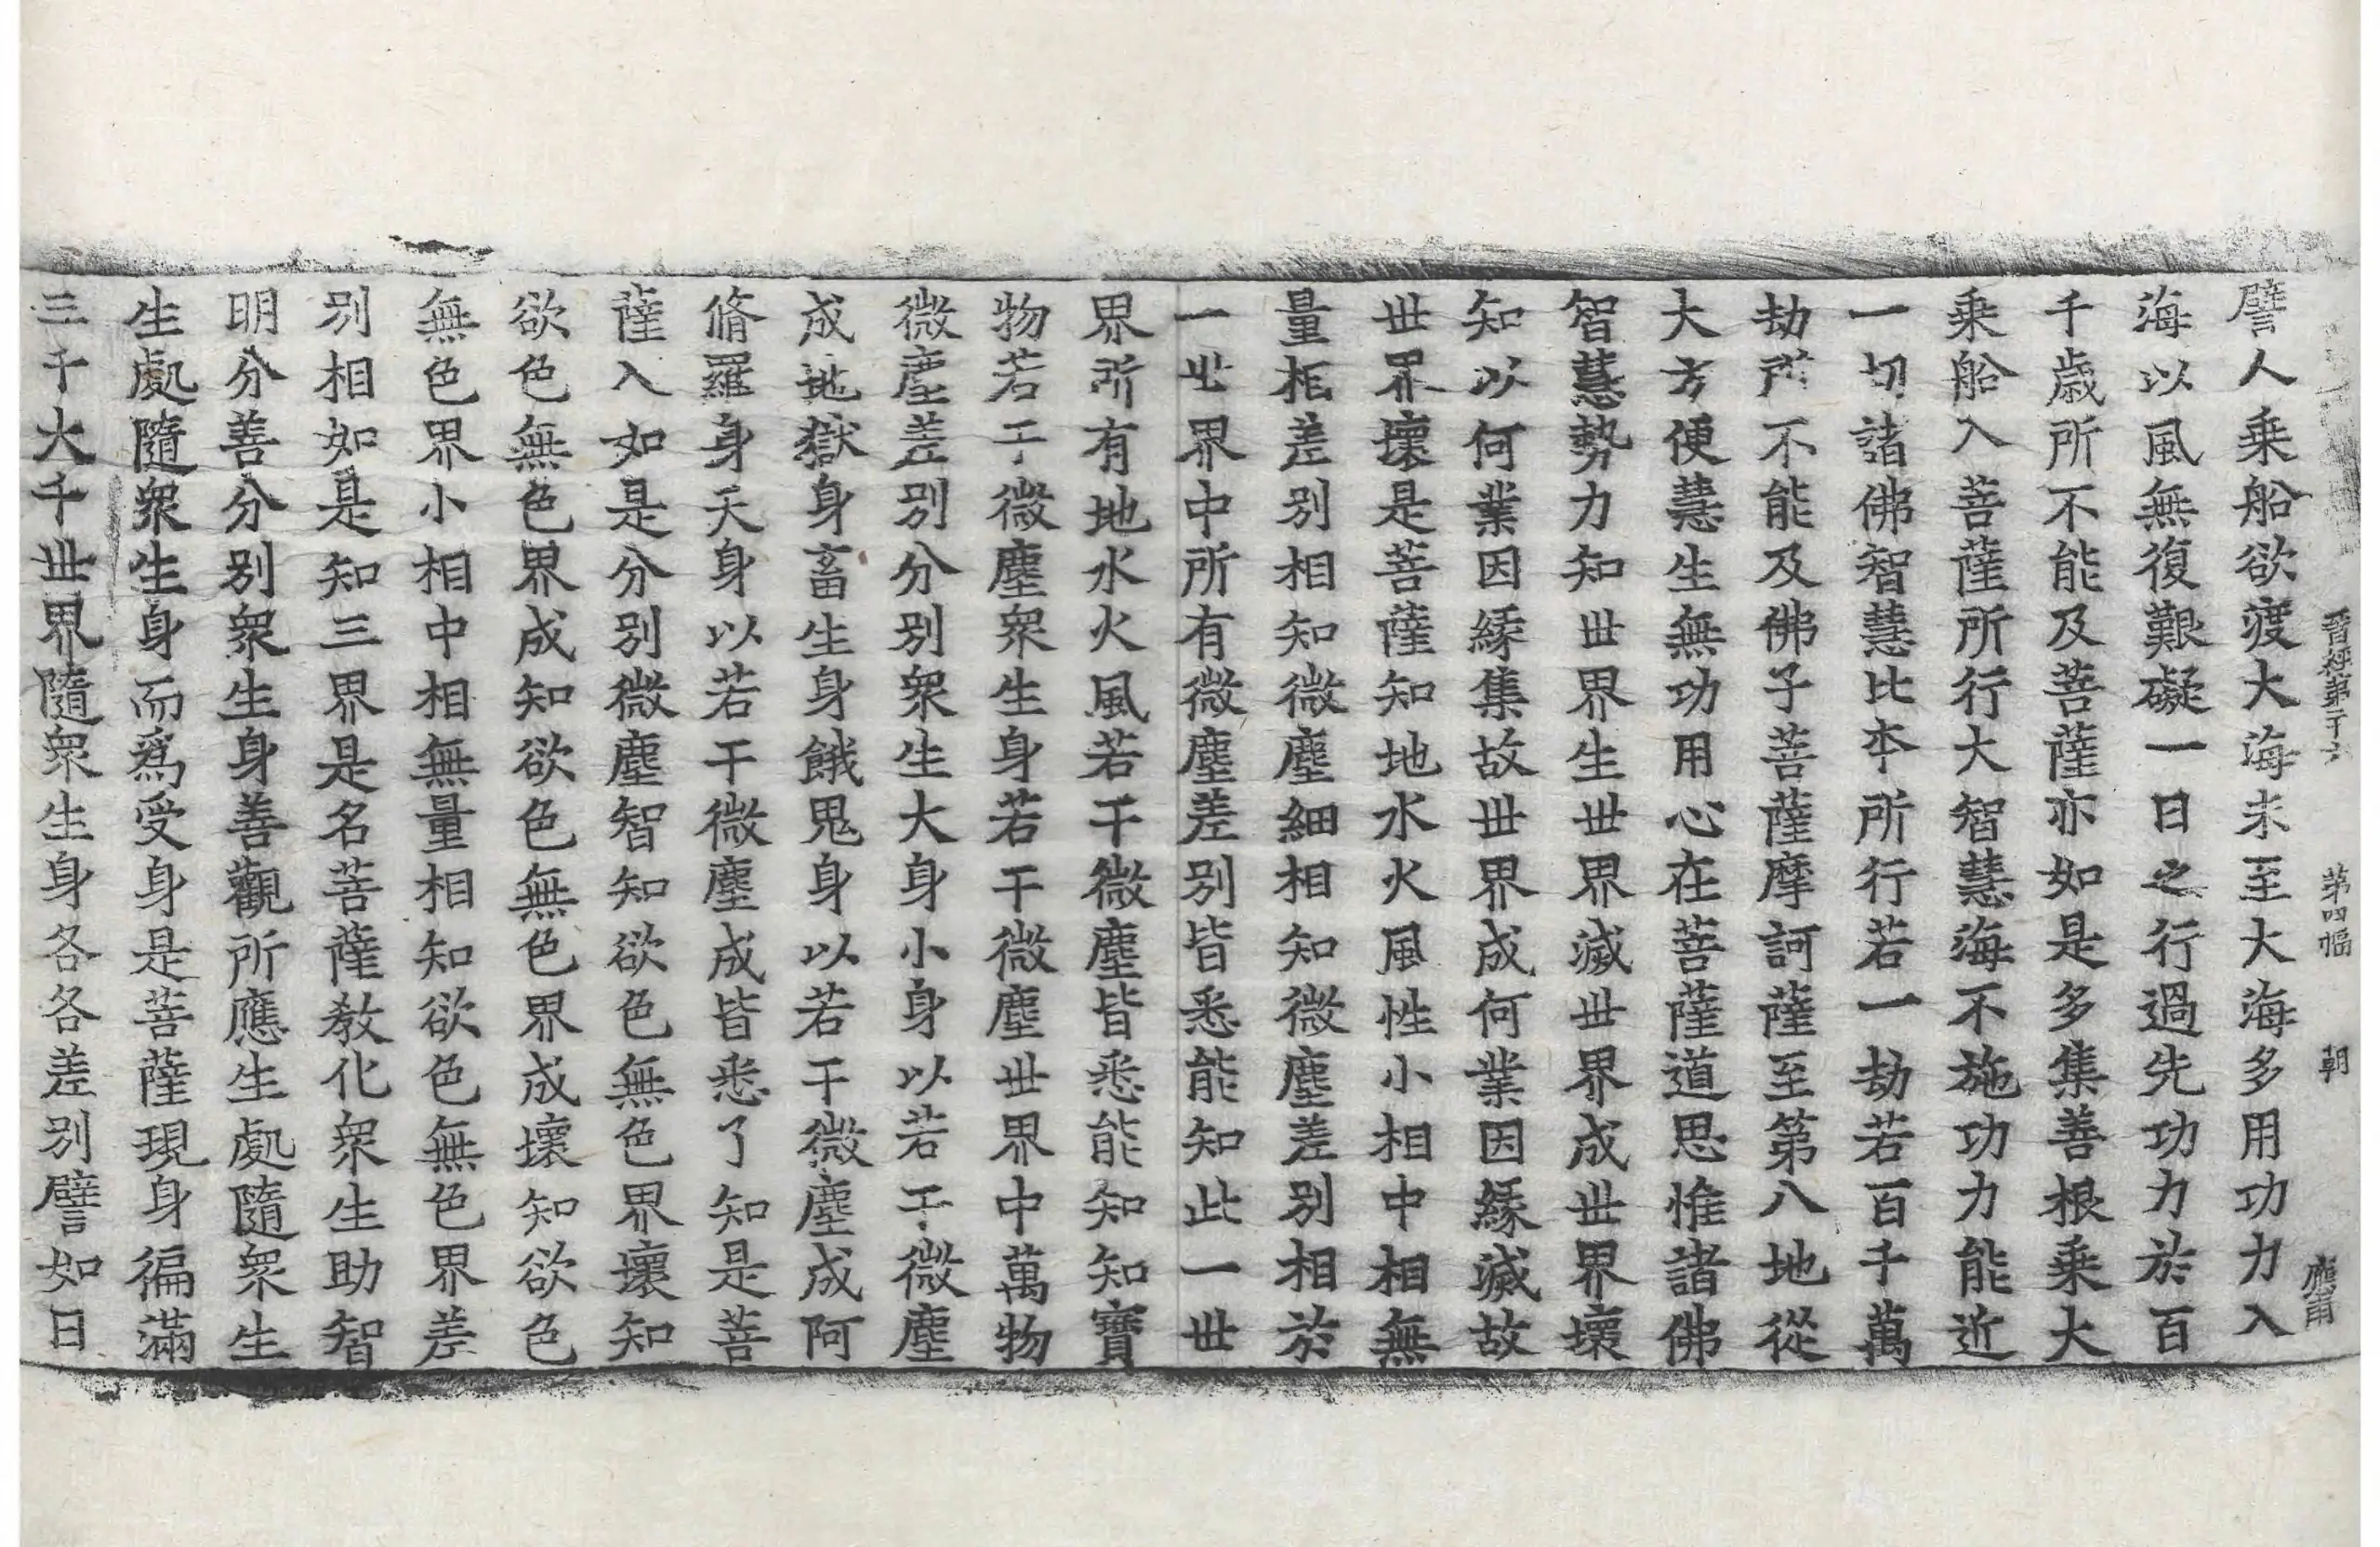 晉經第二十六 第四幅 朝 應甫
譬人乘船欲渡大海未至大海多用功力入
海以風無復艱礙一日之行過先功力於百
千歲所不能及菩薩亦如是多集善根乘大
乘船入菩薩所行大智慧海不施功力能近
一切諸佛智慧比本所行若一劫若百千萬
劫所不能及佛子菩薩摩訶薩至第八地從
大方便慧生無功用心在菩薩道思惟諸佛
智慧勢力知世界生世界滅世界成世界壞
知以何業因緣集故世界成何業因緣滅故
世界壞是菩薩知地水火風性小相中相無
量相差別相知微塵細相知微塵差別相於
一世界中所有微塵差別皆悉能知此一世
界所有地水火風若干微塵皆悉能知知寶
物若干微塵眾生身若干微塵世界中萬物
微塵差別分別眾生大身小身以若干微塵
成地獄身畜生身餓鬼身以若干微塵成阿
脩羅身天身以若干微塵成皆悉了知是菩
薩入如是分別微塵智知欲色無色界壞知
欲色無色界成知欲色無色界成壞知欲色
無色界小相中相無量相知欲色無色界差
別相如是知三界是名菩薩教化眾生助智
明分善分別眾生身善觀所應生處隨眾生
生處隨眾生身而為受身是菩薩現身徧滿
三千大千世界隨眾生身各各差別譬如日